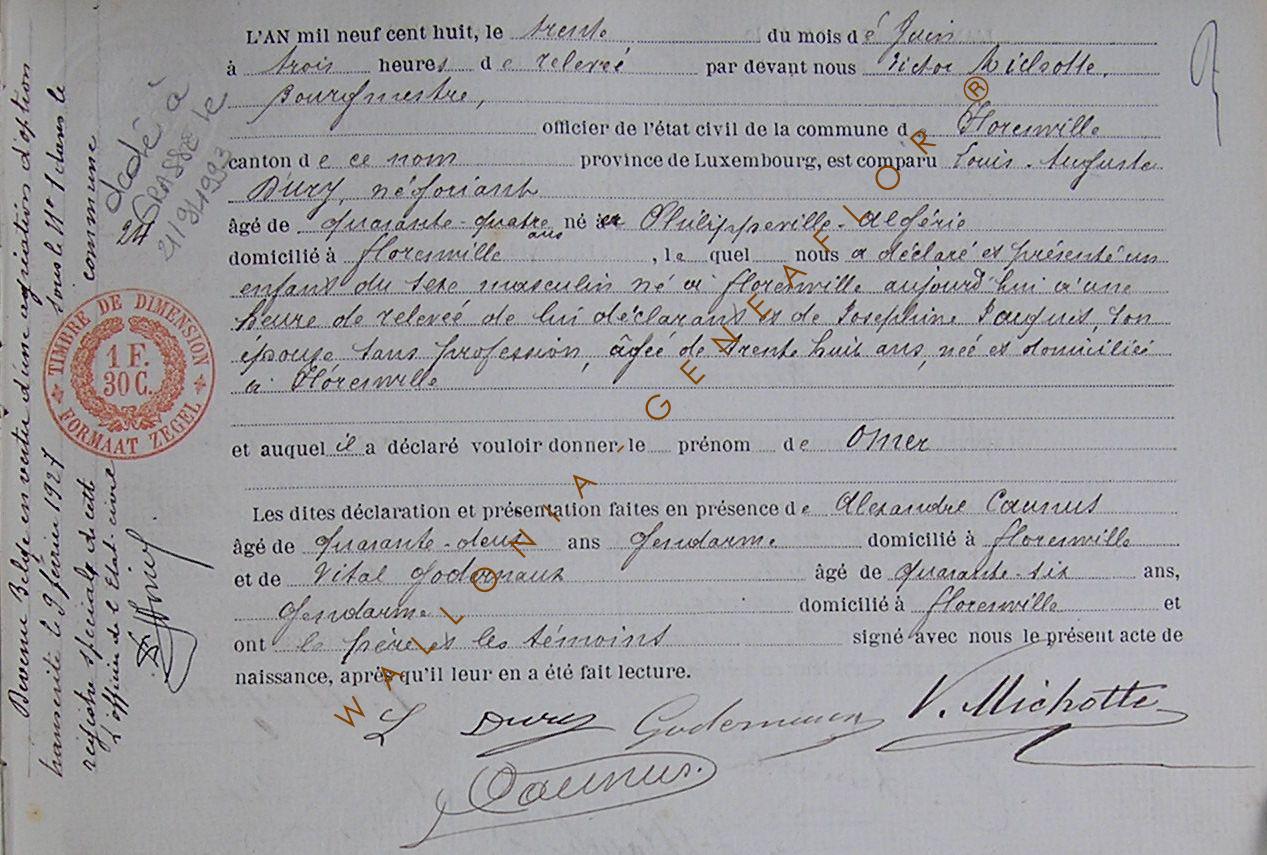 L'AN mil neuf cent huit, le trente du mois dé Juin
à trois heures de relevée par devant nous Victor Michotte,
Bourgmestre,
officier de l'état civil de la commune de Florenville
canton de ce nom province de Luxembourg, est comparu Louis-Auguste
Dury, négociant
âgé de quarante-quatre ans né à Philippeville-Algérie
domicilié à Florenville, lequel nous a déclaré et présenté un
enfant du sexe masculin né à Florenville aujourd'hui à une
heure de relevée de lui déclarant et de Joséphine Jaques, son
épouse sans profession, âgée de trente huit ans, née et domiciliée
à Florenville
et auquel il a déclaré vouloir donner le prénom de Omer
Les dites déclaration et présentation faites en présence de Alexandre Caunus
âgé de quarante-deux ans Gendarme domicilié à Florenville
et de Vital Godernaux âgé de quarante-six ans,
Gendarme domicilié à Florenville et
ont le père et les témoins signé avec nous le présent acte de
naissance, après qu'il leur en a été fait lecture.
L Dury Godernaux V. Michotte
Caunus.
Devenu Belge en vertu d'une agréation d'option
transcrite le 9 février 1927 sous le N° 1 dans le
registre spécial de cette commune
L'officier de l'Etat-civil
dcdé à
GRASSE le
21/9/1993
TIMBRE DE DIMENSION
1 F.
30 C.
FORMAAT ZEGEL
WALLONIA GENEAFLOR ®